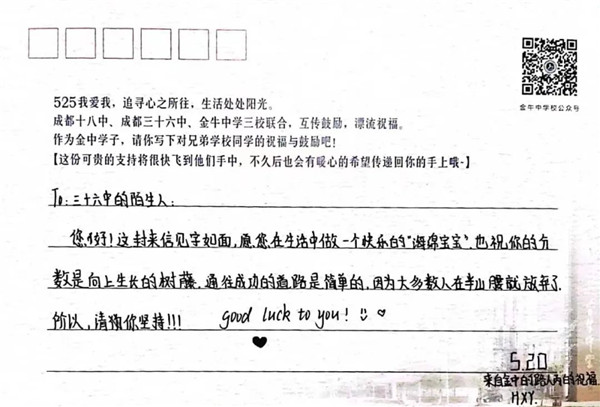 金牛中学校公众号
525我爱我，追寻心之所往，生活处处阳光。
成都十八中、成都三十六中、金牛中学三校联合，互传鼓励，漂流祝福。
作为金中学子，请你写下对兄弟学校同学的祝福与鼓励吧！
【这份可贵的支持将很快飞到他们手中，不久后也会有暖心的希望传递回你的手上哦~】
To：三十六中的陌生人：
您好！这封来信见字如面，愿您在生活中做一个快乐的“海绵宝宝”，也祝你的分
数是向上生长的树藤，通往成功的道路是简单的，因为大多数人在半山腰就放弃了
所以，请你坚持!!!  good luck to you!
5.20
来自金中的路人丙的祝福
HXY.